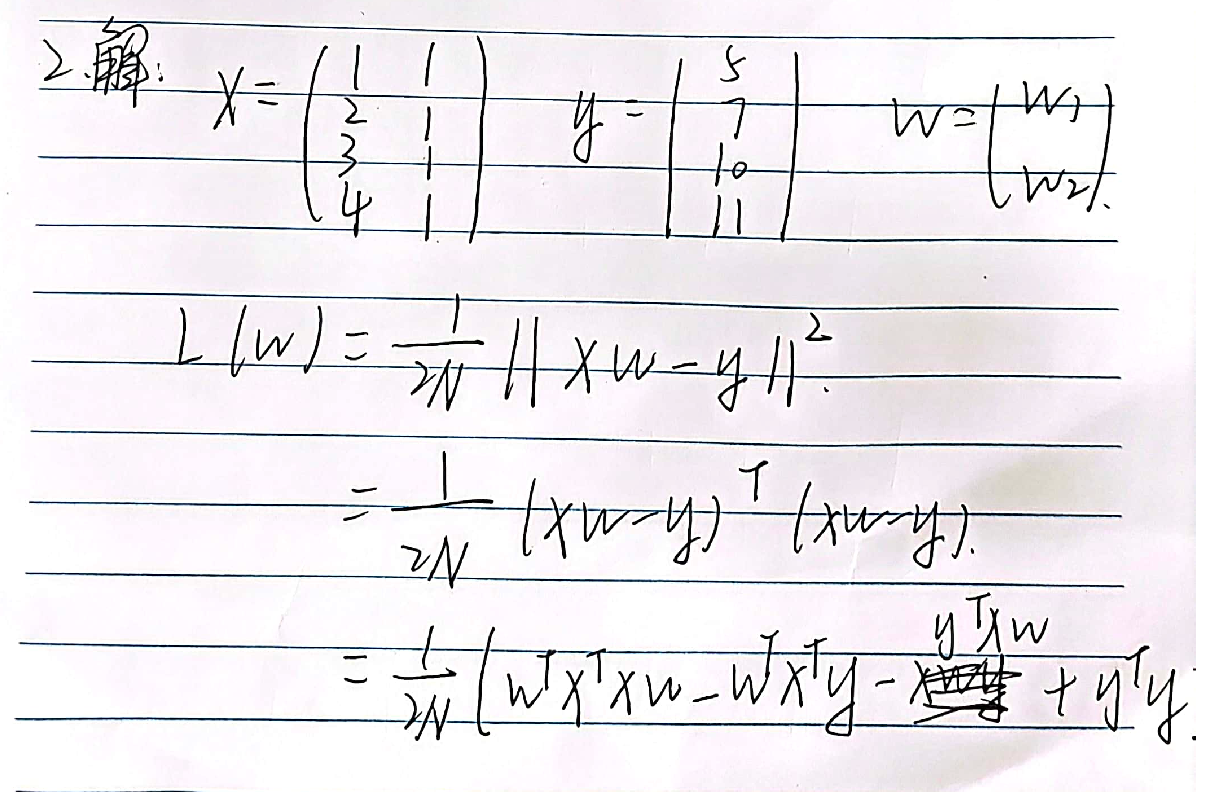 2.解: X = ( 1 1 2 1 3 1 4 1 ) y = ( 5 7 10 11 ) w = ( w1 w2 ).
L(w) = 1/2N ||Xw - y||².
= 1/2N (Xw-y)ᵀ (Xw-y).
= 1/2N ( wᵀXᵀXw - wᵀXᵀy - yᵀXw + yᵀy.